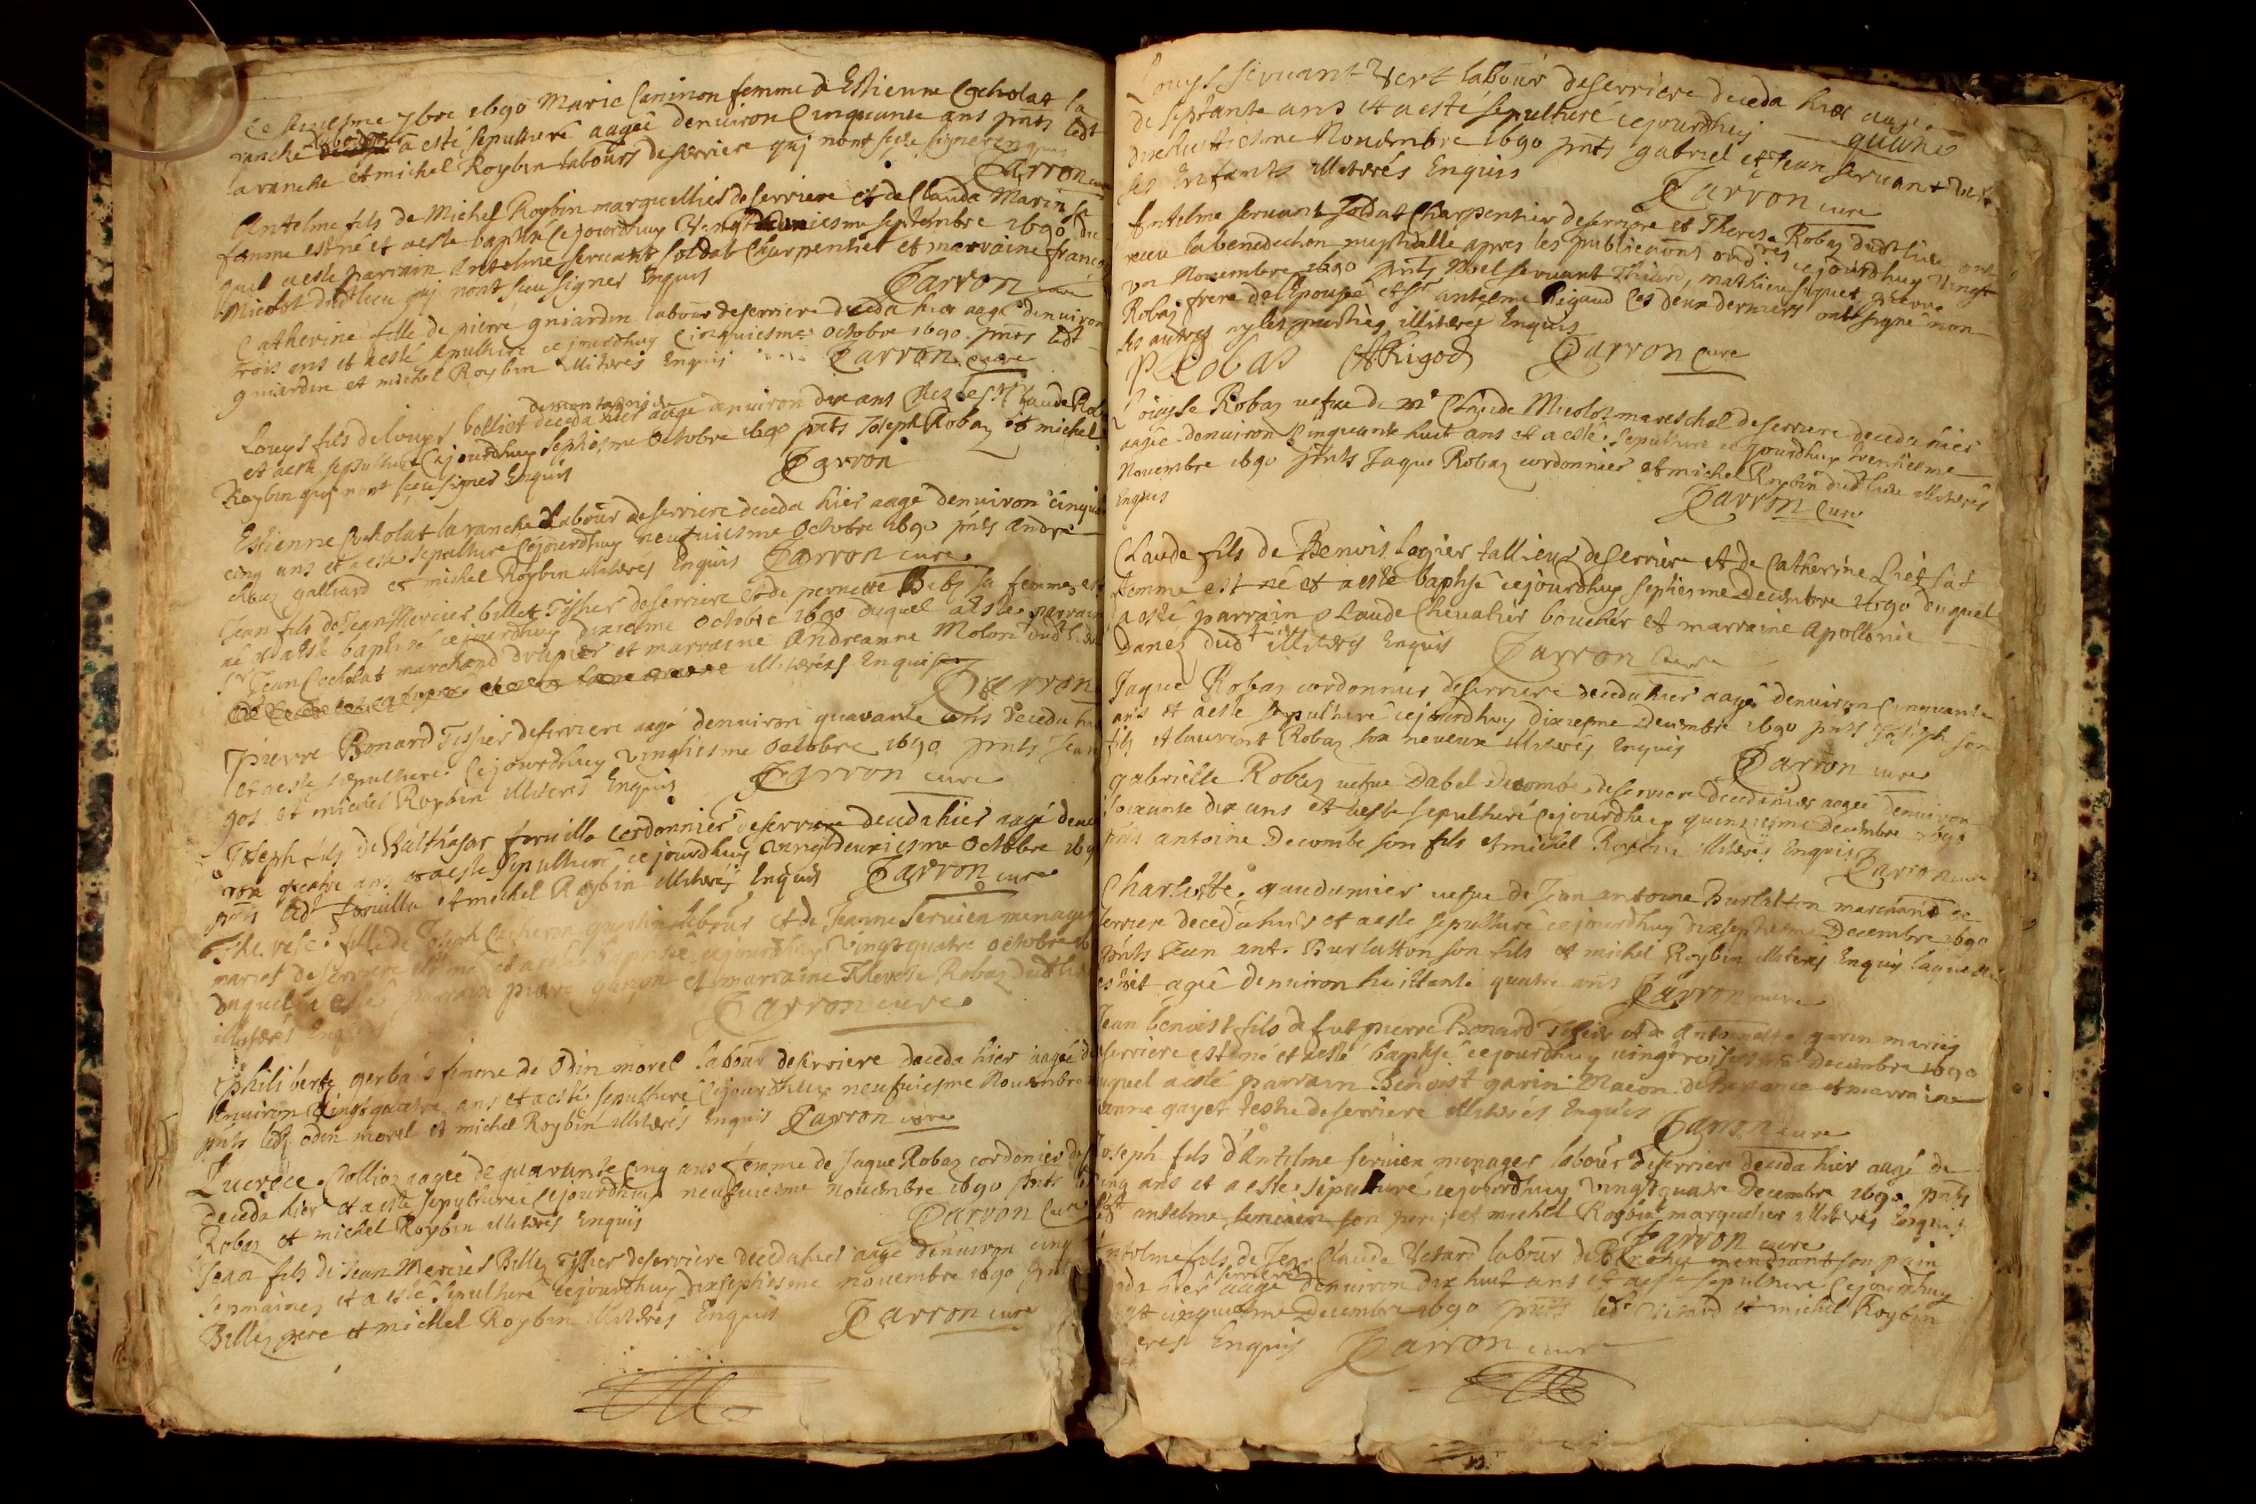 Ce septiesme 7bre 1690 Marie Caninon femme d Estienne Cocholat la
ranche a esté sepulturé aagée denviron Cinquante ans pnts ledt
laranche et michel Roybin labours deserriere quj nont sceu signer enquis
Carron cure
Antelme fils de Michel Roybin marguellier deserriere et de Clauda Marin sa
femme est né et aeste baptisé cejourdhuy septembre 1690 du
quel aeste parrain Antelme servant soldat Charpentier et marraine francoi
Micolot dudt lieu quj nont sceu signer Enquis
Carron curé
Catherine fille de pierre gniardin labour deserriere deceda hier aagé denviron
trois ans et aesté sepulturé cejourdhuy Cinquiesme octobre 1690 pnts ledt
gniardin et michel Roybin illiterés Enquis Carron Curé
Louys fils de louys bolliot deceda hier aagé denviron dix ans Chez le Sr Claude Rob
et aeste sepulturé Cejourdhuy septiesme Octobre 1690 pnts Joseph Robaz et michel
Roybin quj nont sceu signer Enquis Carron
Estienne Cocholat laranche Labour deserriere deceda hier aagé denviron cinqu
cinq ans et aeste sepulturé Cejourdhuy neufuiesme Octobre 1690 pnts andre
galliard et michel Roybin illiterés Enquis Carron cure
Jean fils de Jean Mercier billet Tissier deserriere et de pernette sa femme est
né et aesté baptisé cejourdhuy dixiesme Octobre 1690 duquel aeste parrain
Sr Jean Cocholat marchand drapier et marraine Andreanne Molon dudt lieu
illiteres Enquis
Carron
Pierre Bonard Tissier deserriere aagé denviron quarante ans deceda hier
et aeste sepulturé Cejourdhuy vingtiesme Octobre 1690 pnts Jean
gos et michel Roybin illiteres Enquis Carron cure
Joseph fils de Balthasar forvilla cordonnier deserriere deceda hier aagé denvi
ron quatre ans et aeste sepulturé cejourdhuy vingtdeuxiesme Octobre 169
pnts ledt forvilla et michel Roybin illiterés Enquis Carron cure
Therese fille de Joseph labour et de Jeanne Servien menager
mariés deserriere est né et a esté baptisé cejourdhuy vingtquatre Octobre 16
Duquel a esté parrain pierre et marraine Therese Robaz dudt lieu
illiterés Enquis Carron cure
Philiberte gerbais femme de Odin morel labour deserriere deceda hier aagée d
Environ vingtquatre ans et aesté sepulturé Cejourdhuy neufuiesme Novembre
pnts ledt odin morel et michel Roybin illiterés Enquis Carron cure
Lucrece Collioz aagée de quarante Cinq ans femme de Jaque Robaz cordonier des
deceda hier et aesté sepulturée Cejourdhuy neufuiesme novembre 1690 pnts le
Robaz et michel Roybin illiterés Enquis Carron Cure
Jean fils de Jean Mercier Billez Tissier deserriere deceda hier aagé denviron cinq
sepmaines et a esté sepulturé cejourdhuy dixseptiesme novembre 1690 pnts
Billez pere et michel Roybin illiterés Enquis Carron cure
Louys servant Vert labour deserriere deceda hier aagé
de septante ans et a esté sepulturé cejourdhuy
dixhuittiesme Novembre 1690 pnts gabriel et Jean servant Vert
ses Enfants illiterés Enquis
Carron cure
Antelme servant soldat Charpentier deserriere et Therese Robaz dudt lieu ont
receu labenediction nuptialle apres les publications ordres cejourdhuy vingt
un Novembre 1690 pnts Noel servant mathieu pierre
Robaz frere delEpousé et Sr antelme Rigaud les deux derniers ont signé non
les autres ny les illiterés Enquis
P Robas A Rigod Carron Cure
Louysse Robaz vefve de me Claude Micoloz mareschal deserriere deceda hier
aagée denviron Cinquante huit ans et a esté sepulturé cejourdhuy trentiesme
Novembre 1690 pnts Jaque Robaz cordonnier et michel Roybin dudt lieu illiterés
Enquis Carron cure
Claude fils de Benois logier tallieur deserriere et de Catherine sa
femme est né et a esté baptisé cejourdhuy septiesme Decembre 1690 duquel
a esté parrain Claude Chevalier boucher et marraine Apollonie
Danez dudt illiterés Enquis Carron Cure
Jaque Robaz cordonnier deserriere deceda hier aagé denviron Cinquante
ans et aeste sepulturé cejourdhuy dixiesme Decembre 1690 pnts Joseph son
fils et laurent Robaz son neveux illiterés Enquis Carron cure
gabrielle Robaz vefve dabel Decombe deserriere deceda hier aagée denviron
soixante dix ans et aeste sepulturé Cejourdhuy quinziesme Decembre 1690
pnts antoine Decombe son fils et michel Roybin illiterés Enquis Carron cure
Charlotte gaudumier vefve de Jean antoine Burlatton marchand de
serriere deceda hier et aeste sepulturé cejourdhuy dixseptiesme Decembre 1690
pnts Jean ant. Burlatton son fils et michel Roybin illiterés Enquis laquelle
estoit agée denviron huittante quatre ans Carron cure
Jean benoist fils de fut pierre Bonard Tissier et de antoinette garin mariés
deserriere est né et aesté baptisé cejourdhuy vingttroisiesme Decembre 1690
duquel a esté parrain Benoist garin Macon de et marraine
Janne gayet deserriere illiterés Enquis Carron cure
Joseph fils d'Antelme servien menager labour deserriere deceda hier aagé de
cinq ans et a esté sepulturé cejourdhuy vingtquatre Decembre 1690 pnts
ledt antelme servien son pere et michel Roybin marguelier illiterés Enquis
Carron cure
Antelme fils de Jean Claude labour de mendiant son pain
serriere
deceda hier aagé denviron dix huit ans et aesté sepulturé Cejourdhuy
vingt cinquiesme Decembre 1690 pnts ledt et michel Roybin
illiteres Enquis Carron cure